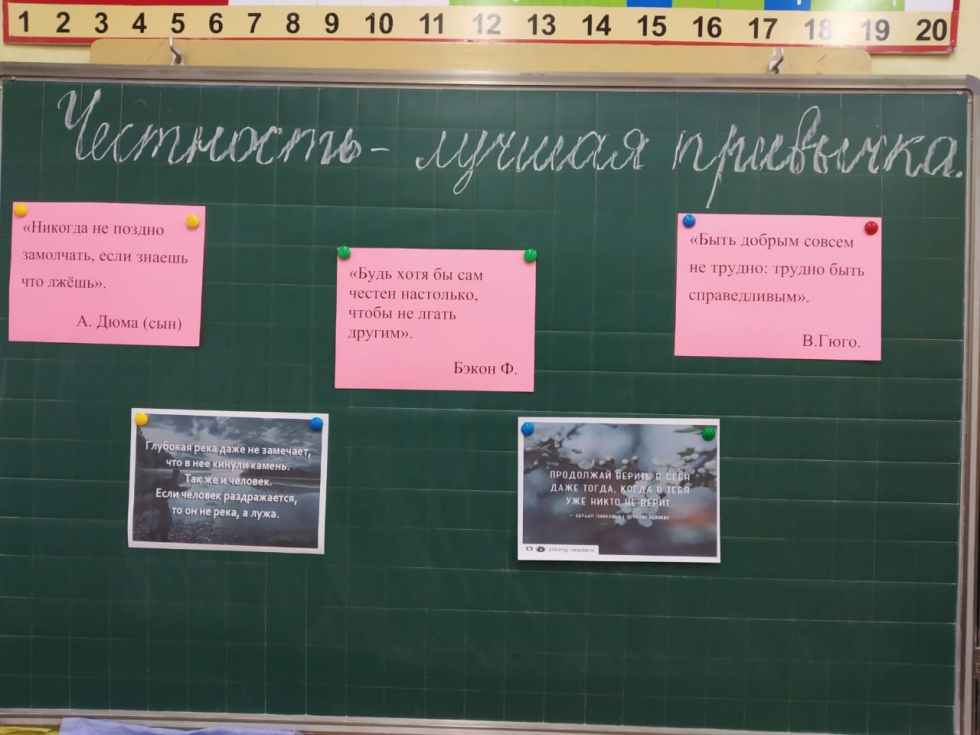 1 2 3 4 5 6 7 8 9 10 11 12 13 14 15 16 17 18 19 20
Честность - лучшая привычка.
«Никогда не поздно
замолчать, если знаешь
что лжёшь».
А. Дюма (сын)
«Будь хотя бы сам
честен настолько,
чтобы не лгать
другим».
Бэкон Ф.
«Быть добрым совсем
не трудно: трудно быть
справедливым».
В.Гюго.
Глубокая река даже не замечает,
что в нее кинули камень.
Так же и человек.
Если человек раздражается,
то он не река, а лужа.
ПРОДОЛЖАЙ ВЕРИТЬ В СЕБЯ
ДАЖЕ ТОГДА, КОГДА В ТЕБЯ
УЖЕ НИКТО НЕ ВЕРИТ.
young readers